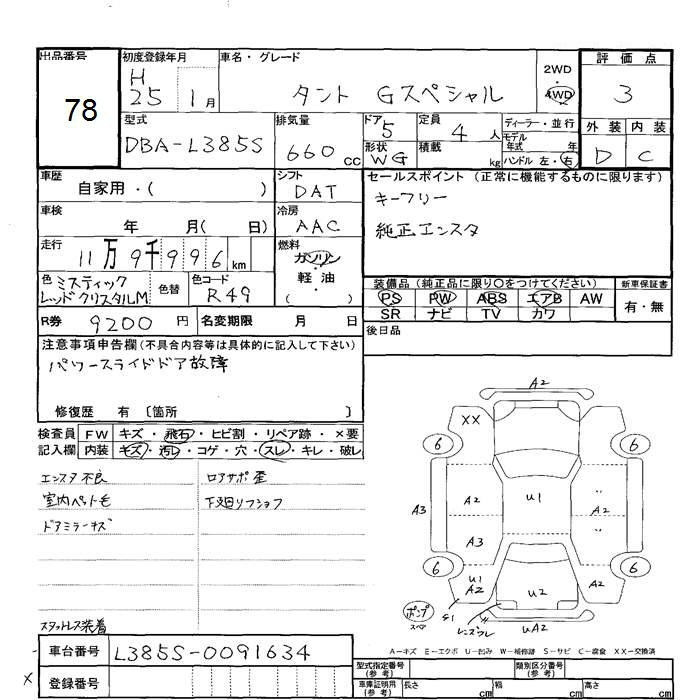 出品番号
78
初度登録年月
H
25 1月
車名・グレード
タント Gスペシャル
2WD
・
4WD
評価点
3
外装 内装
D C
型式
DBA-L385S
排気量
660 cc
ドア
5
定員
4 人
形状
WG
積載
kg
ディーラー・並行
モデル
年式 年
ハンドル 左・右
車歴
自家用・( )
シフト
DAT
車検
年 月( 日)
冷房
AAC
走行
11万9千996 km
燃料
ガソリン
・
軽油
( )
色 ミスティック
レッドクリスタルM
色替
色コード
R49
セールスポイント (正常に機能するものに限ります)
キーフリー
純正エンスタ
装備品 (純正品に限り○をつけてください)
新車保証書
PS PW ABS エアB AW
SR ナビ TV カワ
有・無
R券 9200 円 名変期限 月 日
後日品
注意事項申告欄 (不具合内容等は具体的に記入して下さい)
パワースライドドア故障
修復歴 有 〔箇所 〕
検査員
記入欄
FW キズ・飛石・ヒビ割・リペア跡・×要
内装 キズ・汚レ・コゲ・穴・スレ・キレ・破レ
エンスタ不良
室内ペット毛
ドアミラーキズ
ロアサポ歪
下廻リフショク
スタットレス装着
A2
XX
6 6
A2 U1 A2
A3
A3
6 6
U1
A2 U2 A2
S1
ポンプ
スペア
レンズワレ
UA2
A-キズ E-エクボ U-凹み W-補修跡 S-サビ C-腐食 XX-交換済
車台番号 L385S-0091634
X
登録番号
型式指定番号
(参考)
類別区分番号
(参考)
車庫証明用
(参考)
長さ cm 幅 cm 高さ cm